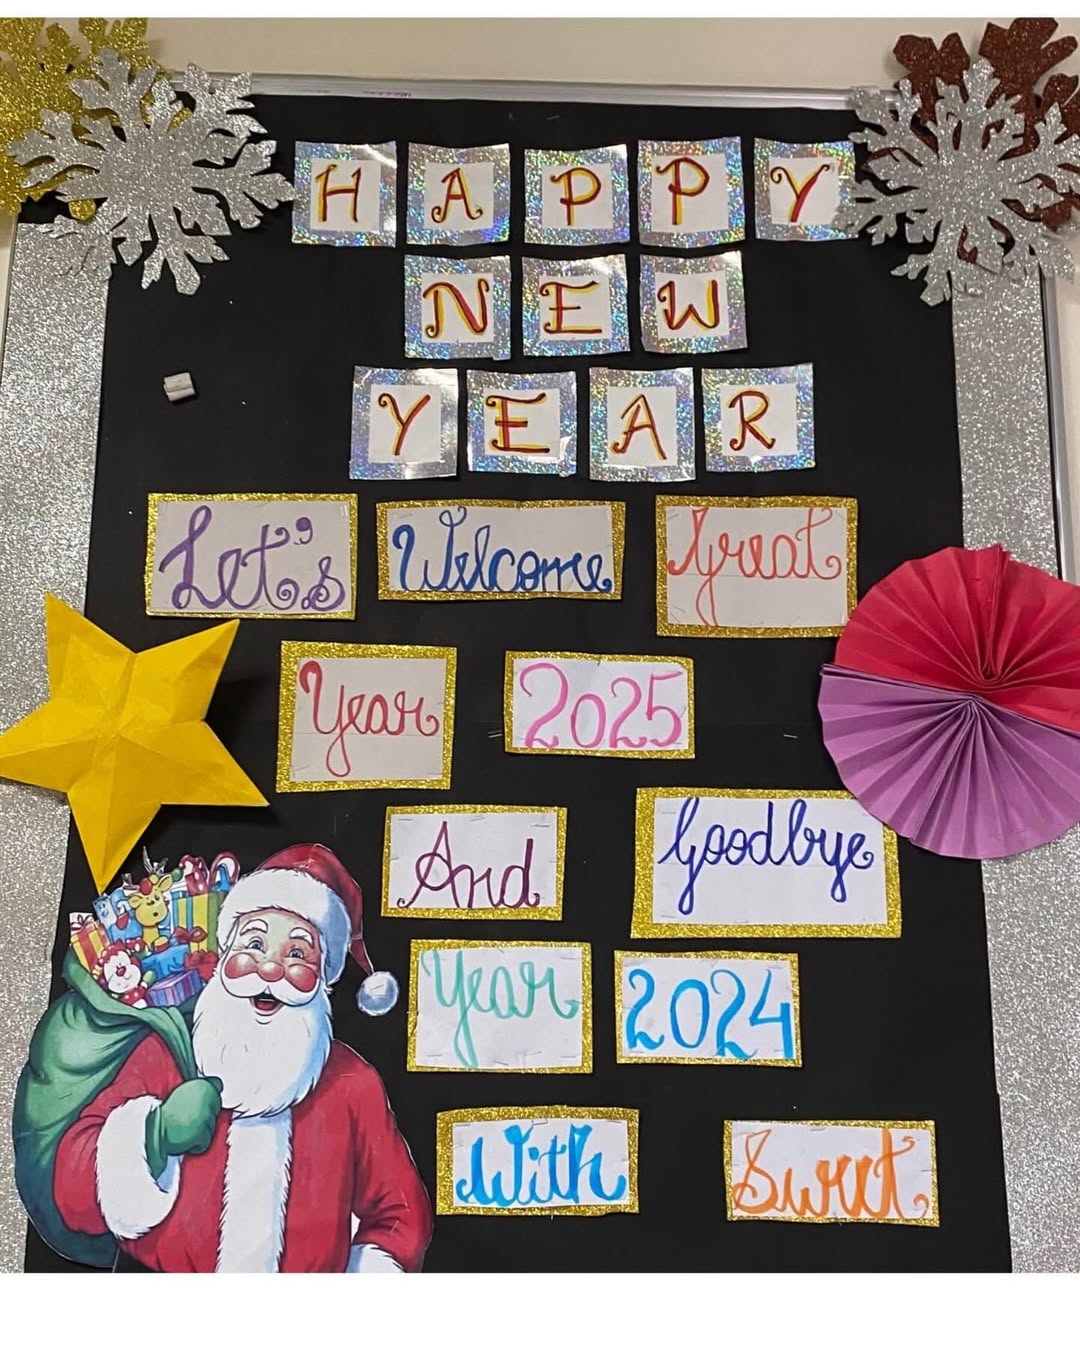 HAPPY
NEW
YEAR
Let's Welcome Great
Year 2025
And Goodbye
Year 2024
With Sweet